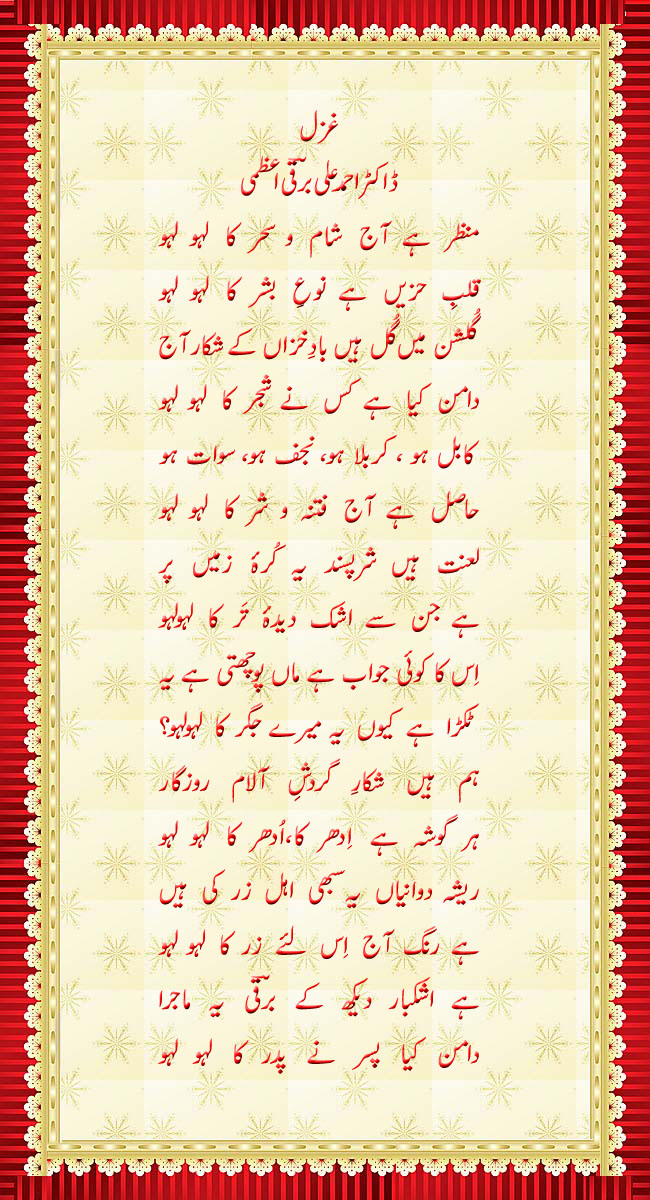 غزل
ڈاکٹر احمد علی برقیؔ اعظمی
منظر ہے آج شام و سحر کا لہو لہو
قلبِ حزیں ہے نوعِ بشر کا لہو لہو
گُلشن میں گُل ہیں بادِ خزاں کے شکار آج
دامن کیا ہے کس نے شجر کا لہو لہو
کابل ہو ، کربلا ہو، نجف ہو، سوات ہو
حاصل ہے آج فتنہ و شر کا لہو لہو
لعنت ہیں شرپسند یہ کُرۂ زمیں پر
ہے جن سے اشک دیدۂ تَر کا لہولہو
اِس کا کوئی جواب ہے ماں پوچھتی ہے یہ
ٹکڑا ہے کیوں یہ میرے جگر کا لہولہو؟
ہم ہیں شکارِ گردشِ آلام روزگار
ہر گوشہ ہے اِدھر کا،اُدھر کا لہو لہو
ریشہ دوانیاں یہ سبھی اہل زر کی ہیں
ہے رنگ آج اِس لئے زر کا لہو لہو
ہے اشکبار دیکھ کے برقیؔ یہ ماجرا
دامن کیا پسر نے پدر کا لہو لہو